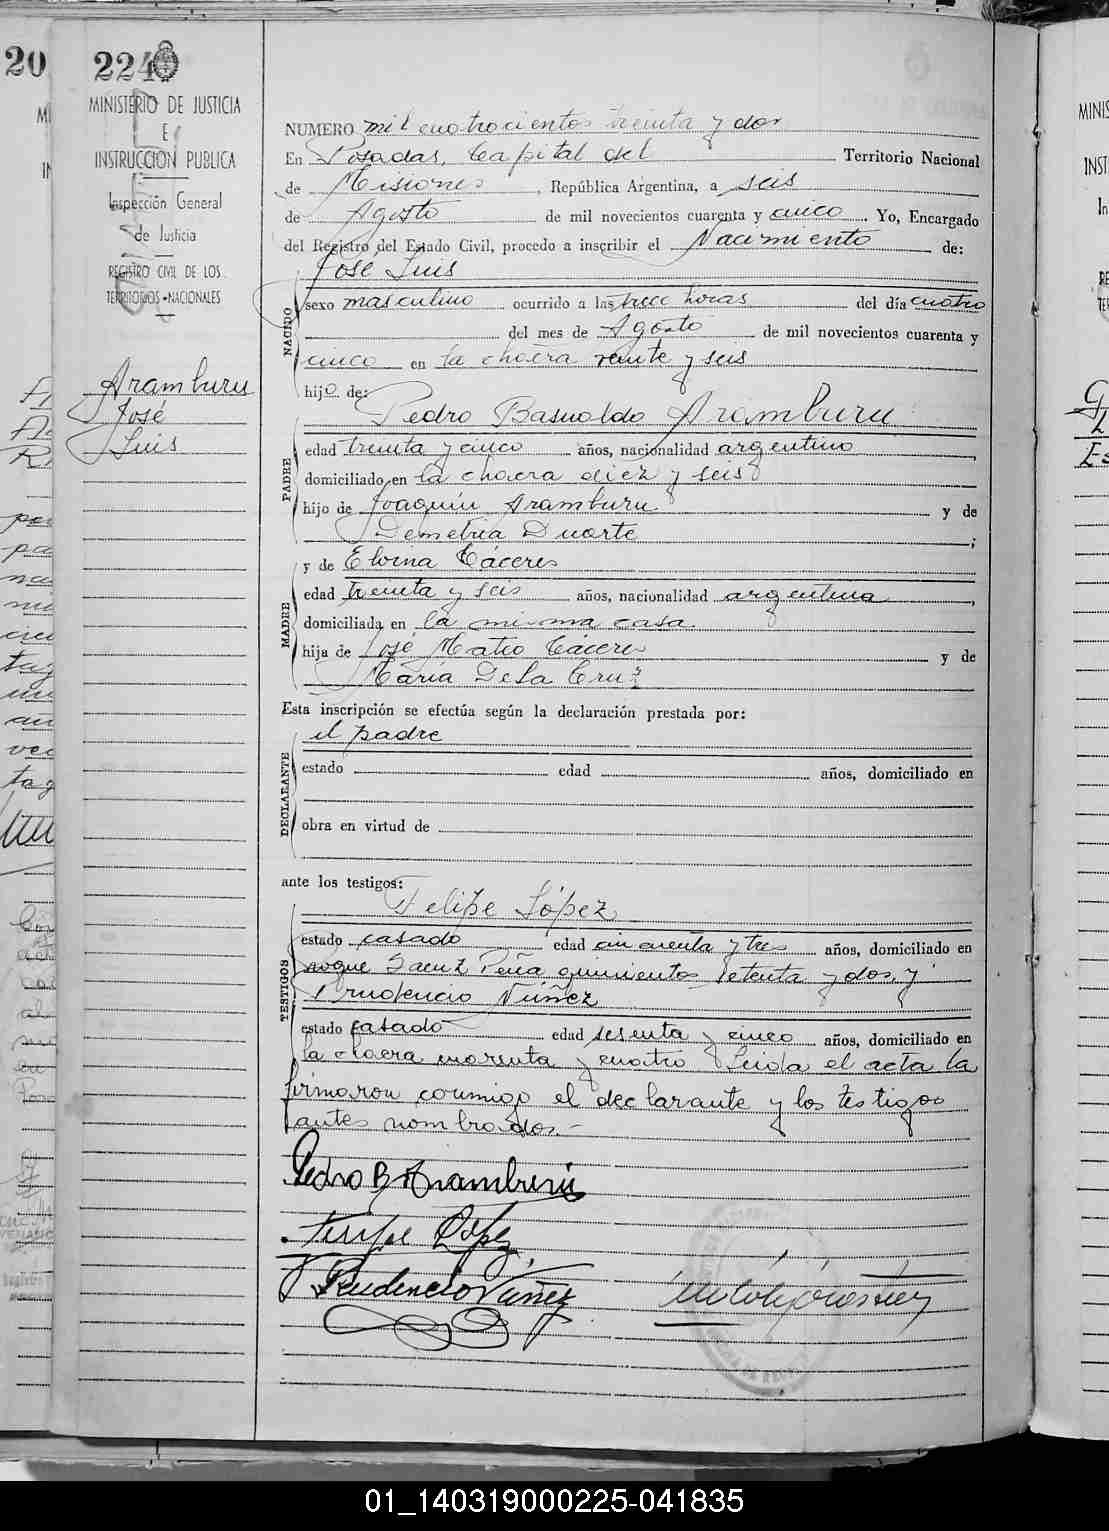 20
224
MINISTERIO DE JUSTICIA
E
INSTRUCCIÓN PUBLICA
Inspección General
de Justicia
REGISTRO CIVIL DE LOS
TERRITORIOS NACIONALES
Aramburu
José
Luis
NUMERO mil cuatrocientos treinta y dos
En Posadas, Capital del Territorio Nacional
de Misiones, República Argentina, a seis
de Agosto de mil novecientos cuarenta y cinco. Yo, Encargado
del Registro del Estado Civil, procedo a inscribir el Nacimiento de:
José Luis
NACIDO
sexo masculino ocurrido a las trece horas del día cuatro
del mes de Agosto de mil novecientos cuarenta y
cinco en la chacra veinte y seis
hijo de:
Pedro Basualdo Aramburu
PADRE
edad treinta y cinco años, nacionalidad argentino,
domiciliado en la chacra diez y seis
hijo de Joaquín Aramburu y de
Demetria Duarte;
y de Elvina Cáceres
MADRE
edad treinta y seis años, nacionalidad argentina,
domiciliada en la misma casa
hija de José Matio Cáceres y de
María De La Cruz
Esta inscripción se efectúa según la declaración prestada por:
el padre
DECLARANTE
estado edad años, domiciliado en
obra en virtud de
ante los testigos:
Felipe López
TESTIGOS
estado casado edad cincuenta y tres años, domiciliado en
roque Saenz Peña quinientos setenta y dos, y
Prudencio Núñez
estado casado edad sesenta y cinco años, domiciliado en
la chacra noventa y cuatro Leida el acta la
firmaron conmigo el declarante y los testigos
antes nombrados.-
Pedro B Aramburú
Felipe López
Prudencio Núñez
MINIS
INST
In
RE
TER
01_140319000225-041835